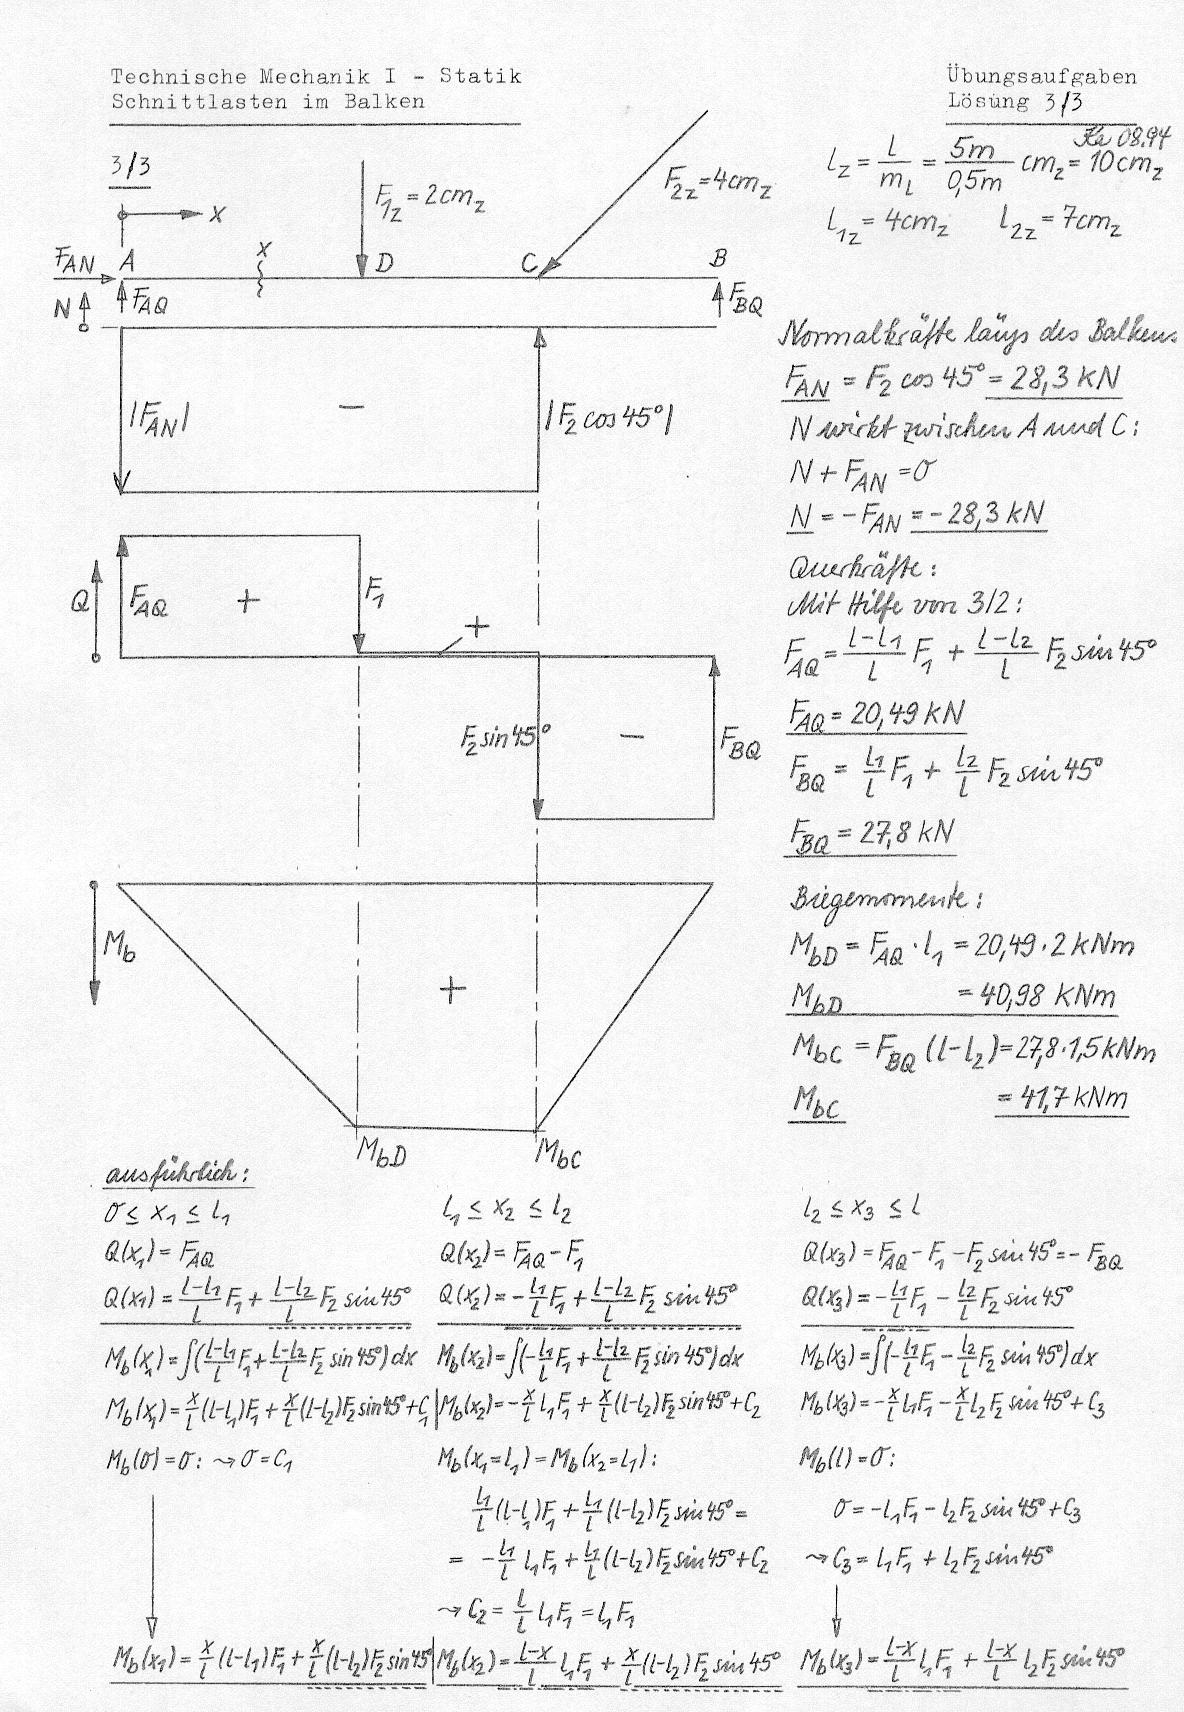 Technische Mechanik I - Statik
Schnittlasten im Balken
Übungsaufgaben
Lösung 3/3
Ke 08.94
3/3
l_z = l/m_l = 5m/0,5m cm_z = 10cm_z
l_1z = 4cm_z l_2z = 7cm_z
F_1z = 2cm_z
F_2z = 4cm_z
x
x
F_AN A D C B
N F_AQ F_BQ
|F_AN| − |F_2 cos 45°|
Q F_AQ + F_1 +
F_2 sin 45° − F_BQ
M_b +
M_bD M_bC
Normalkräfte längs des Balkens
F_AN = F_2 cos 45° = 28,3 kN
N wirkt zwischen A und C:
N + F_AN = 0
N = −F_AN = −28,3 kN
Querkräfte:
Mit Hilfe von 3/2:
F_AQ = (l−l_1)/l F_1 + (l−l_2)/l F_2 sin 45°
F_AQ = 20,49 kN
F_BQ = l_1/l F_1 + l_2/l F_2 sin 45°
F_BQ = 27,8 kN
Biegemomente:
M_bD = F_AQ · l_1 = 20,49 · 2 kNm
M_bD = 40,98 kNm
M_bC = F_BQ (l−l_2) = 27,8 · 1,5 kNm
M_bC = 41,7 kNm
ausführlich:
0 ≤ x_1 ≤ l_1
Q(x_1) = F_AQ
Q(x_1) = (l−l_1)/l F_1 + (l−l_2)/l F_2 sin 45°
M_b(x_1) = ∫((l−l_1)/l F_1 + (l−l_2)/l F_2 sin 45°) dx
M_b(x_1) = x/l (l−l_1)F_1 + x/l (l−l_2)F_2 sin 45° + C_1
M_b(0) = 0: ⤳ 0 = C_1
M_b(x_1) = x/l (l−l_1)F_1 + x/l (l−l_2)F_2 sin 45°
l_1 ≤ x_2 ≤ l_2
Q(x_2) = F_AQ − F_1
Q(x_2) = −l_1/l F_1 + (l−l_2)/l F_2 sin 45°
M_b(x_2) = ∫(−l_1/l F_1 + (l−l_2)/l F_2 sin 45°) dx
M_b(x_2) = −x/l l_1 F_1 + x/l (l−l_2)F_2 sin 45° + C_2
M_b(x_1=l_1) = M_b(x_2=l_1):
l_1/l (l−l_1)F_1 + l_1/l (l−l_2)F_2 sin 45° =
= −l_1/l l_1 F_1 + l_1/l (l−l_2)F_2 sin 45° + C_2
⤳ C_2 = l/l l_1 F_1 = l_1 F_1
M_b(x_2) = (l−x)/l l_1 F_1 + x/l (l−l_2)F_2 sin 45°
l_2 ≤ x_3 ≤ l
Q(x_3) = F_AQ − F_1 − F_2 sin 45° = −F_BQ
Q(x_3) = −l_1/l F_1 − l_2/l F_2 sin 45°
M_b(x_3) = ∫(−l_1/l F_1 − l_2/l F_2 sin 45°) dx
M_b(x_3) = −x/l l_1 F_1 − x/l l_2 F_2 sin 45° + C_3
M_b(l) = 0:
0 = −l_1 F_1 − l_2 F_2 sin 45° + C_3
⤳ C_3 = l_1 F_1 + l_2 F_2 sin 45°
M_b(x_3) = (l−x)/l l_1 F_1 + (l−x)/l l_2 F_2 sin 45°